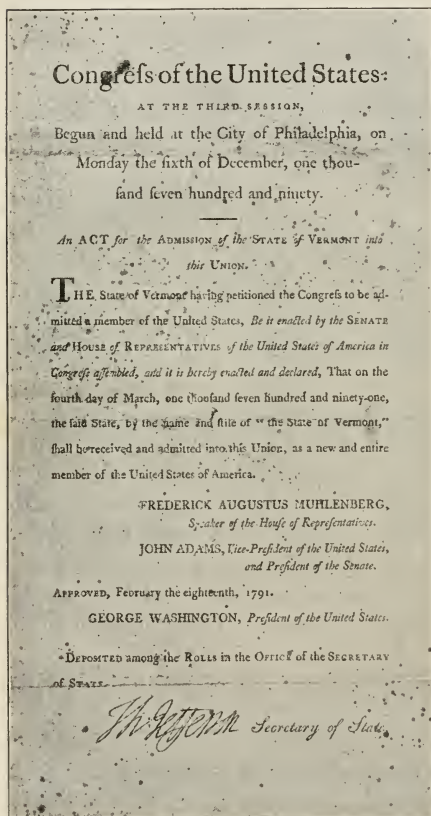 Congreſs of the United States:
AT THE THIRD SESSION,
Begun and held at the City of Philadelphia, on
Monday the ſixth of December, one thou-
ſand ſeven hundred and ninety.
An ACT for the ADMISSION of the STATE of VERMONT into
this UNION.
THE State of Vermont having petitioned the Congreſs to be ad-
mitted a member of the United States, Be it enacted by the SENATE
and HOUSE of REPRESENTATIVES of the United States of America in
Congreſs aſſembled, and it is hereby enacted and declared, That on the
fourth day of March, one thouſand ſeven hundred and ninety-one,
the ſaid State, by the name and ſtile of "the State of Vermont,"
ſhall be received and admitted into this Union, as a new and entire
member of the United States of America.
FREDERICK AUGUSTUS MUHLENBERG,
Speaker of the Houſe of Repreſentatives.
JOHN ADAMS, Vice-Preſident of the United States,
and Preſident of the Senate.
APPROVED, February the eighteenth, 1791.
GEORGE WASHINGTON, Preſident of the United States.
DEPOSITED among the ROLLS in the OFFICE of the SECRETARY
of STATE.
Th. Jefferson Secretary of State.